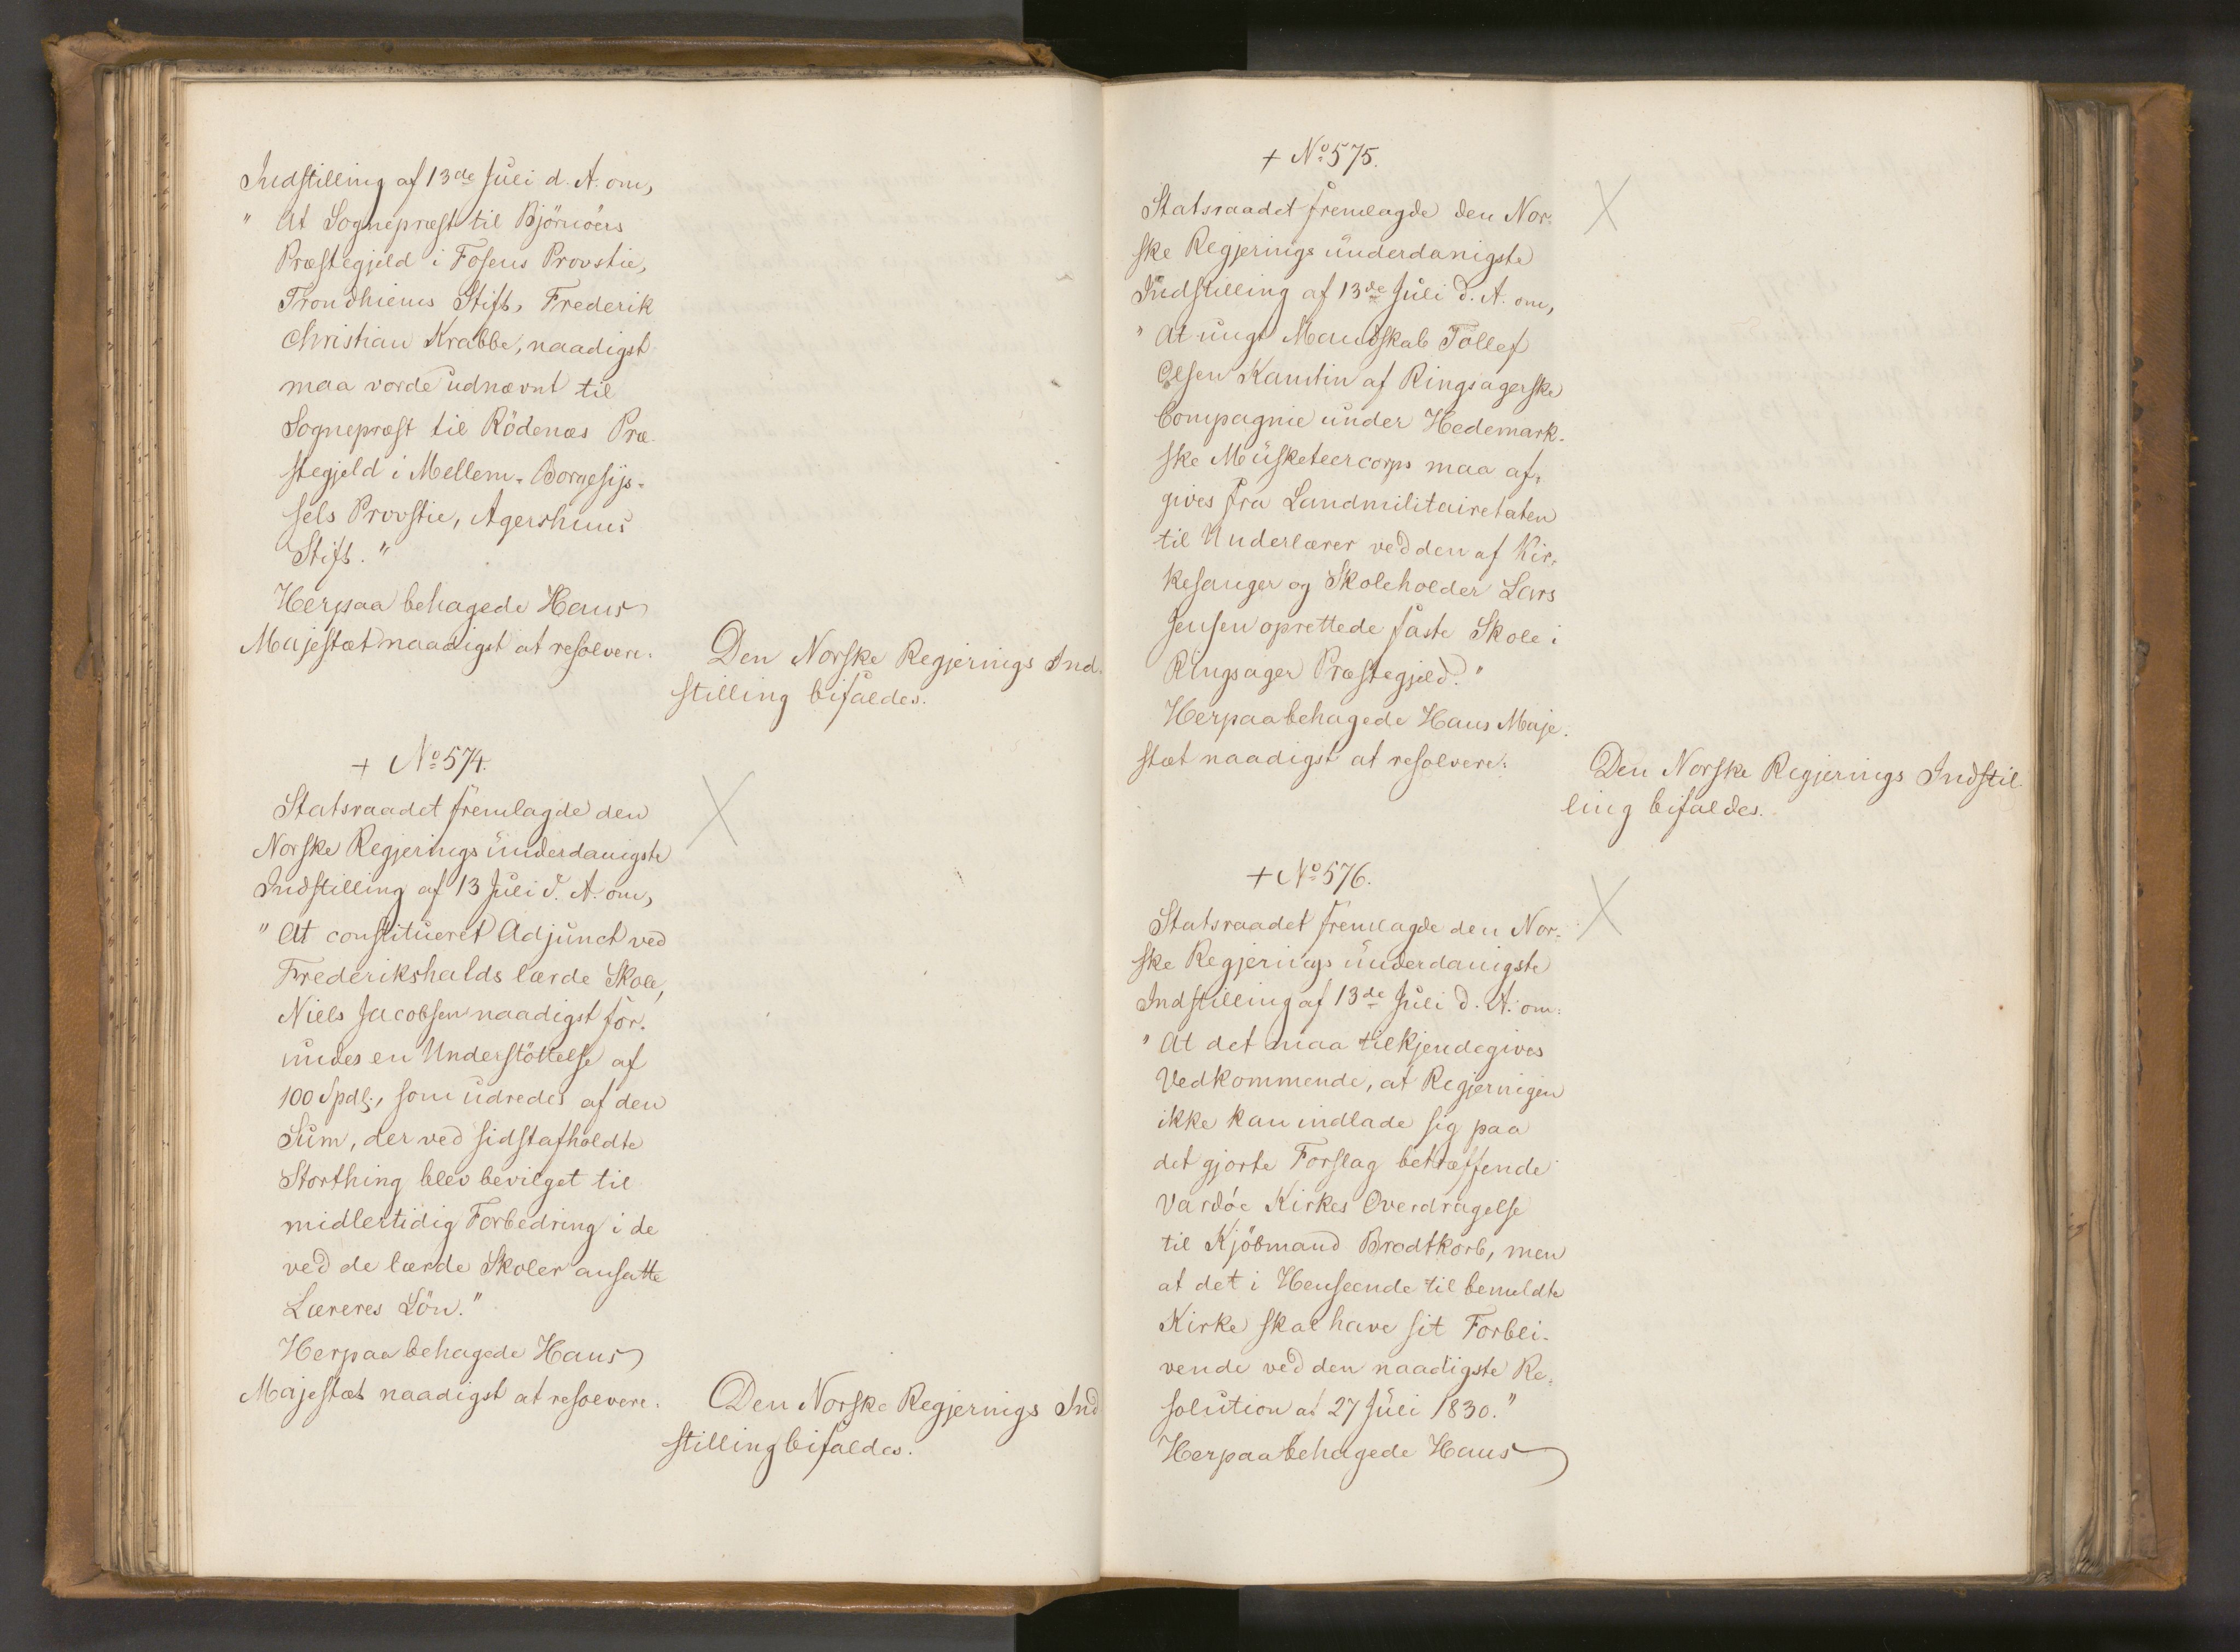 Indstilling af 13de Juli d. A. om,
" At Sognepræst til Björnöers
Præstegjeld i Fosens Provstie,
Trondhiems Stift, Frederik
Christian Krabbe, naadigst
maa vorde udnævnt til
Sognepræst til Rödenæs Præ-
stegjeld i Mellem-Borgesys-
sels Provstie, Agershuus
Stift."
Herpaa behagede Hans
Majestæt naadigst at resolvere:
Den Norske Regjerings Ind-
stilling bifaldes.
+ No 574.
Statsraadet fremlagde den
Norske Regjerings underdanigste
Indstilling af 13 Juli d. A. om,
" At constitueret Adjunct ved
Frederikshalds lærde Skole,
Niels Jacobsen naadigst for-
undes en Understöttelse af
100 Spdlr., som udredes af den
Sum, der ved sidstafholdte
Storthing blev bevilget til
midlertidig Forbedring i de
ved de lærde Skoler ansatte
Læreres Lön."
Herpaa behagede Hans
Majestæt naadigst at resolvere:
Den Norske Regjerings Ind
stilling bifaldes.
+ No 575.
Statsraadet fremlagde den Nor-
ske Regjerings underdanigste
Indstilling af 13de Juli d. A. om,
" At ungt Mandskab Tollef
Olsen af Ringsagerske
Compagnie under Hedemark-
ske Musketeercorps maa af-
gives fra Landmilitairetaten
til Underlærer ved den af Kir-
kesanger og Skoleholder Lars
Jensen oprettede faste Skole i
Ringsager Præstegjeld."
Herpaa behagede Hans Maje-
stæt naadigst at resolvere:
Den Norske Regjerings Indstil
ling bifaldes.
+ No 576.
Statsraadet fremlagde den Nor-
ske Regjerings underdanigste
Indstilling af 13de Juli d. A. om:
" At det maa tilkjendegives
Vedkommende, at Regjeringen
ikke kan indlade sig paa
det gjorte Forslag betræffende
Vardöe Kirkes Overdragelse
til Kjöbmand Brodtkorb, men
at det i Henseende til bemeldte
Kirke skal have sit Forbli-
vende ved den naadigste Re-
solution af 27 Juli 1830."
Herpaa behagede Hans